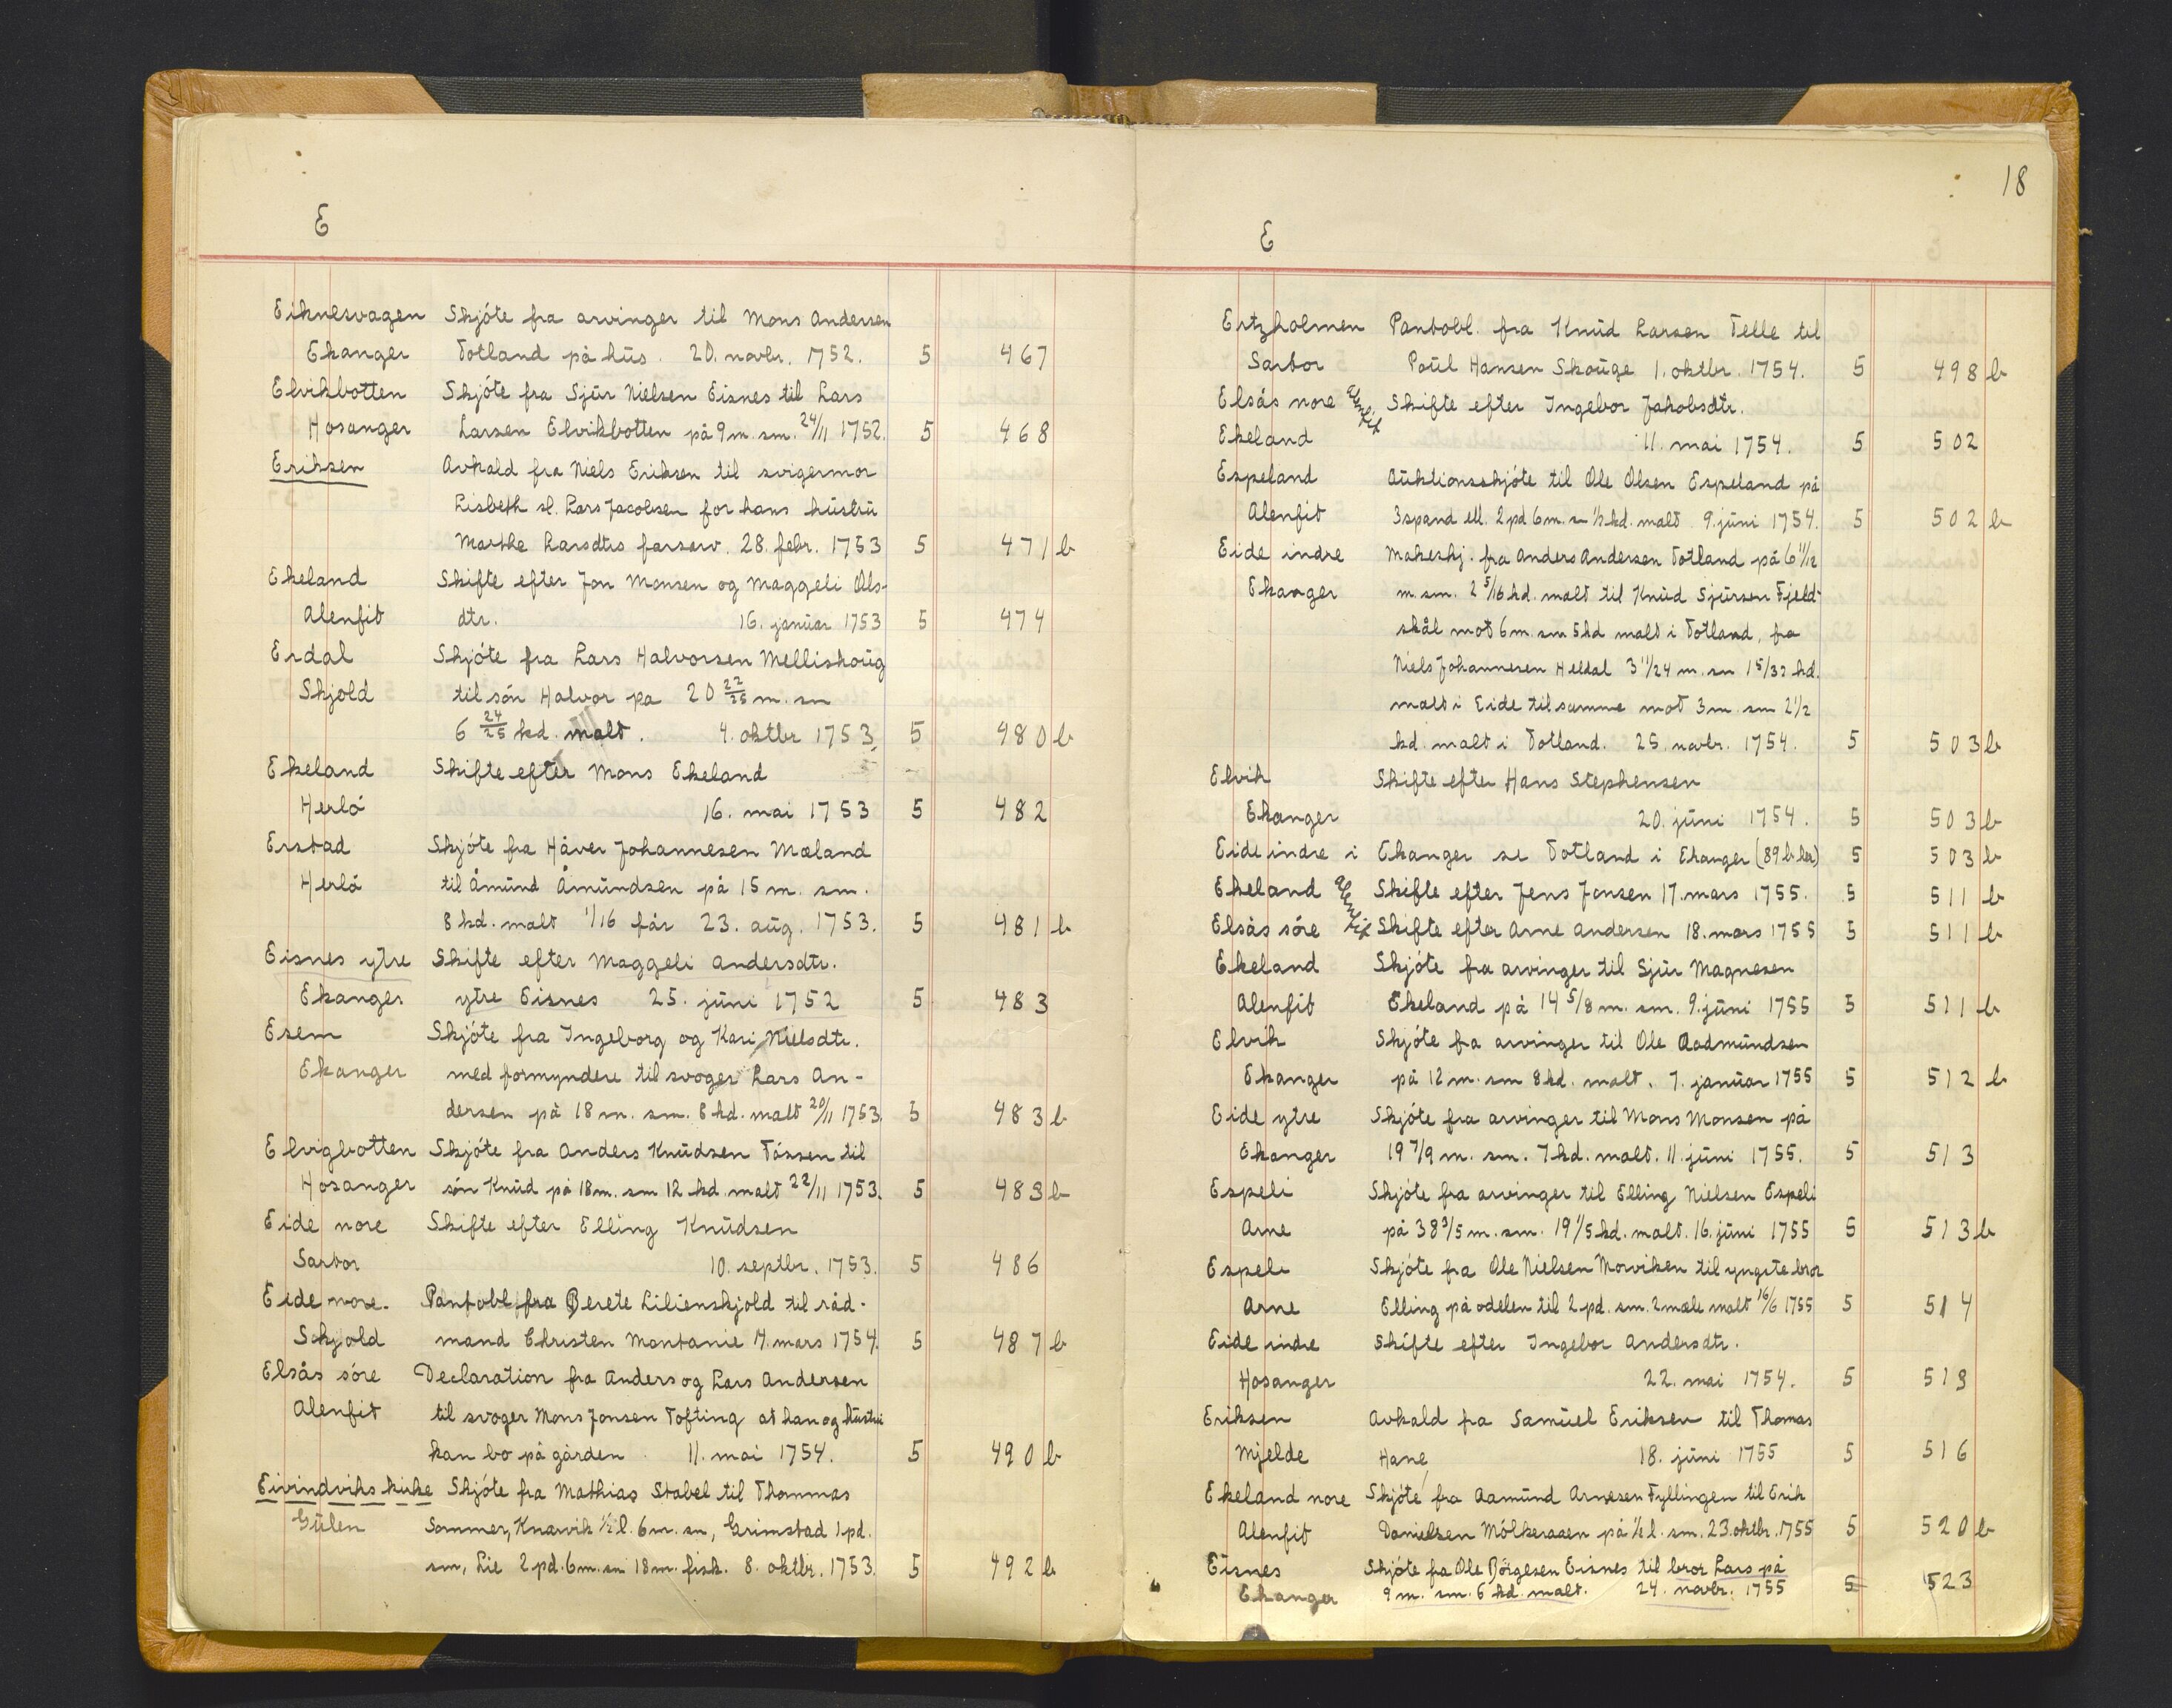 E
Eiknesvagen Skjóte fra arvinger til Mons Andersen
Ekanger Totland på hüs. 20. novbr. 1752. 5 467
Elvikbotten Skjóte fra Sjür Nielsen Eisnes til Lars
Hosanger Larsen Elvikbotten på 9 m. sm. 24/11 1752. 5 468
Eriksen Avkald fra Niels Eriksen til svigermor
Lisbeth sl. Lars Jacobsen for hans hüstrü
Marthe Larsdtrs farsarv. 28. febr. 1753 5 471 b
Ekeland Skifte efter Jon Monsen og Maggeli Ols-
Alenfit dtr. 16. janüar 1753 5 474
Erdal Skjóte fra Lars Halvorsen Melliskoüg
Skjold til són Halvor pa 20 22/25 m. sm
6 24/25 kd. malt. 4. oktbr 1753, 5 480 b
Ekeland Skifte efter Mons Ekeland
Herló 16. mai 1753 5 482
Erstad Skjóte fra Håver Johannesen Mæland
Herló til Åmünd Åmündsen på 15 m. sm.
8 kd. malt 1/16 får 23. aüg. 1753. 5 481 b
Eisnes ytre Skifte efter Maggeli Andersdtr.
Ekanger ytre Eisnes 25. jüni 1752 5 483
Esem Skjóte fra Ingeborg og Kari Nielsdtr.
Ekanger med formyndere til svoger Lars An-
dersen på 18 m. sm. 8 kd. malt 20/11 1753. 5 483 b
Elvigbotten Skjóte fra Anders Knüdsen Tóssen til
Hosanger són Knüd på 18m. sm 12 kd. malt 22/11 1753. 5 483 b
Eide nore Skifte efter Elling Knüdsen
Sartor 10. septbr. 1753. 5 486
Eide nore. Pantobl. fra Berete Lilienskjold til råd-
Skjold mand Christen Montanie 17. mars 1754. 5 487 b
Elsås sóre Declaration fra Anders og Lars Andersen
Alenfit til svoger Mons Jonsen Tofting at han og hüstrü
kan bo på gården 11. mai 1754. 5 490 b
Eivindviks kirke Skjóte fra Mathias Stabel til Thommas
Gülen Sommer, Knarvik 1/2 l. 6m. sm, Grimstad 1 pd.
sm, Lie 2 pd. 6m. sm 18m. fisk. 8. oktbr. 1753. 5 492 b
18
E
Ertzholmen Pantobl. fra Knüd Larsen Telle til
Sartor Poül Hansen Skoüge 1. oktbr. 1754. 5 498 b
Elsås nore Alenfit Skifte efter Ingebor Jakobsdtr.
Ekeland 11. mai 1754. 5 502
Espeland Aüktionsskjóte til Ole Olsen Espeland på
Alenfit 3 spand ell. 2 pd 6 m. sm 1/2 kd. malt 9. jüni 1754. 5 502 b
Eide indre Makeskj. fra Anders Andersen Totland på 6 11/12
Ekanger m. sm. 2 5/16 kd. malt til Knüd Sjürsen Fjeld-
skål mot 6 m. sm 5 kd malt i Totland, fra
Niels Johannesen Heldal 3 11/24 m. sm 1 5/32 kd.
malt i Eide til samme mot 3 m. sm 2 1/2
kd. malt i Totland. 25. novbr. 1754. 5 503 b
Elvik Skifte efter Hans Stephensen
Ekanger 20. jüni 1754. 5 503 b
Eide indre i Ekanger se Totland i Ekanger (89 b her) 5 503 b
Ekeland Alenfit Skifte efter Jens Jonsen 17. mars 1755. 5 511 b
Elsås sóre Skifte efter Arne Andersen 18. mars 1755 5 511 b
Ekeland Skjóte fra arvinger til Sjür Magnesen
Alenfit Ekeland på 14 5/8 m. sm. 9. jüni 1755 5 511 b
Elvik Skjóte fra arvinger til Ole Aadmündsen
Ekanger på 12 m. sm 8 kd. malt. 7. janüar 1755 5 512 b
Eide ytre Skjóte fra arvinger til Mons Monsen på
Ekanger 19 7/9 m. sm. 7 kd. malt. 11. jüni 1755. 5 513
Espeli Skjóte fra arvinger til Elling Nielsen Espeli
Arne på 38 3/5 m. sm. 19 1/5 kd. malt. 16. jüni 1755 5 513 b
Espeli Skjóte fra Ole Nielsen Morviken til yngste bror
Arne Elling på odelen til 2 pd. sm. 2 mæle malt 16/6 1755 5 514
Eide indre Skifte efter Ingebor Andersdtr.
Hosanger 22. mai 1754. 5 519
Eriksen Avkald fra Samüel Eriksen til Thomas
Mjelde Hane 18. jüni 1755 5 516
Ekeland nore Skjóte fra Aamünd Arnesen Fyllingen til Erik
Alenfit Danielsen Mólkeraaen på 1/2 l. sm. 23. oktbr. 1755 5 520 b
Eisnes Skjóte fra Ole Børgesen Eisnes til bror Lars på
Ekanger 9 m. sm. 6 kd. malt. 24. novbr. 1755 5 523